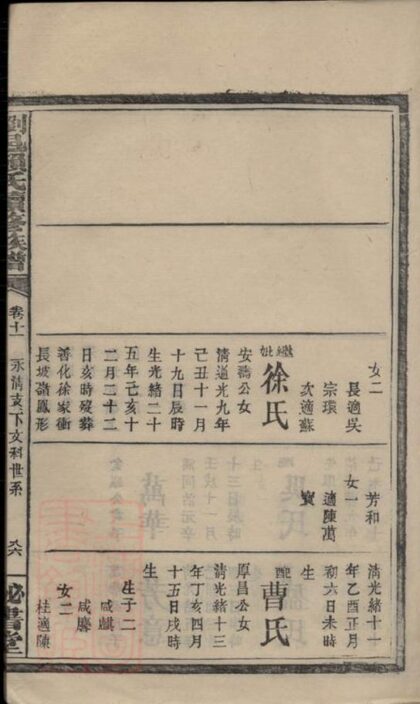 女二
長適吳
宗環
次適蘇
繼妣
徐氏
安瀚公女
清道光九年
己丑十一月
十九日辰時
生光緒二十
五年己亥十
二月二十二
日亥時歿葬
善化徐家衝
長坡嶺鳳形
芳和
女一
適陳萬
寶
清光緒十一
年乙酉正月
初六日未時
生
配
曹氏
厚昌公女
清光緒十三
年丁亥四月
十五日戌時
生
生子二
咸麒
咸麐
女二
桂適陳
氏續修族譜
卷十一
永清支下文科世系
祕書堂